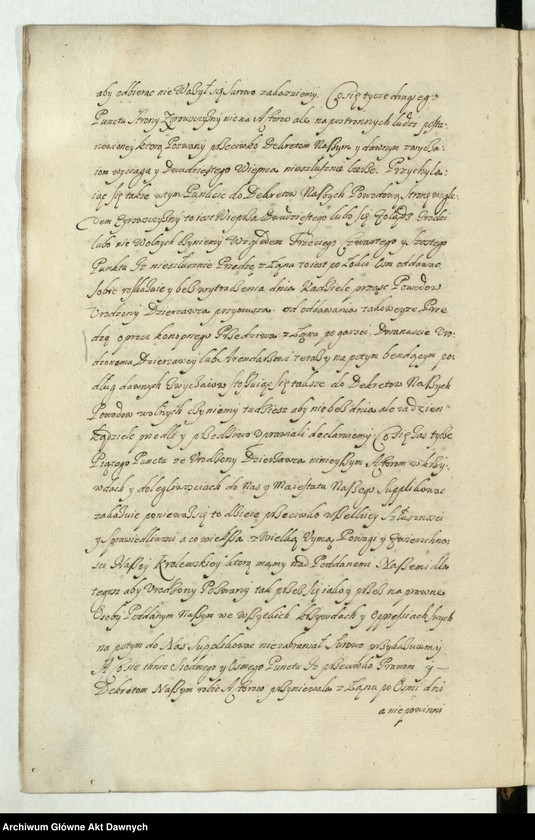 aby odbierac nie Wazył się Surowo zakazuiemy. Co się tycze drugiego
Punctu strony Zyrowszczyzny nie na Actorow ale na postronnych ludzi posta,
nowioney ktorą Pozwany przeciwko Dekretom Naszym y dawnym zwycza,
iom wyciąga y Dwudziestego Wieprza nieszlusznie bierze. Przychyla,
iąc się także w tym Punkcie do Dekretow Naszych Powodow Strony wzglę,
dem Zyrowszczyzny to iest Wieprza Dwudziestego lubo się Zołądz zrodzi
lubo nie Wolnych czyniemy Względem Trzeciego Czwartego y Szostego
Punktu Iz nieszlusznie Przedzę z Łanu to iest po Łokci Osm oddawac
sobie roskazuie y bez wytrącenia dnia Kądziele prząsc Powodow
Urodzony Dzierzawca przymusza. od oddawania takowey ze Prze
dzę oprocz konopnego Przedziwa z Łanu po garzci Dwanascie Uro,
dzonemu Dzierzawcy lub Arendarzowi teraz y na potym bendącym po
dług dawnych Zwyczaiow stosuiąc się także do Dekretow Naszych
Powodow wolnych czyniemy tudziesz aby nie bez dnia ale za dzien
Kądziele przedli y przedziwo uprawiali declaruiemy. Co się zas tycze
Piątego Punctu ze Urodzony Dzierzawca ninieyszym Actorom w krzy,
wdach y dolegliwosciach do Nas y Maiestatu Naszego Supplikowac
zakazuie poniewasz się to dzieie przeciwko wszelkiey Szlusznosci
y Sprawiedliwosci a co wieksza z Wielką Uymą Powagi y Zwierzchno,
sci Naszey Krolewskiey ktorą mamy nad Poddanemi Naszemi dla
tegosz aby Urodzony Pozwany tak przez się iako y przez naprawne
Osoby Poddanym Naszym we wszytkich krzywdach y oppressiach swych
na potym do Nas Supplikowac nie zabraniał Surowo przykazuiemy
A co się tknie Siodmego y Osmego Punctu Iz przeciwko Prawom y
Dekretom Naszym robic Actorow przyniewala z Łanu po Osmi dni
a nie powinni
Archiwum Główne Akt Dawnych